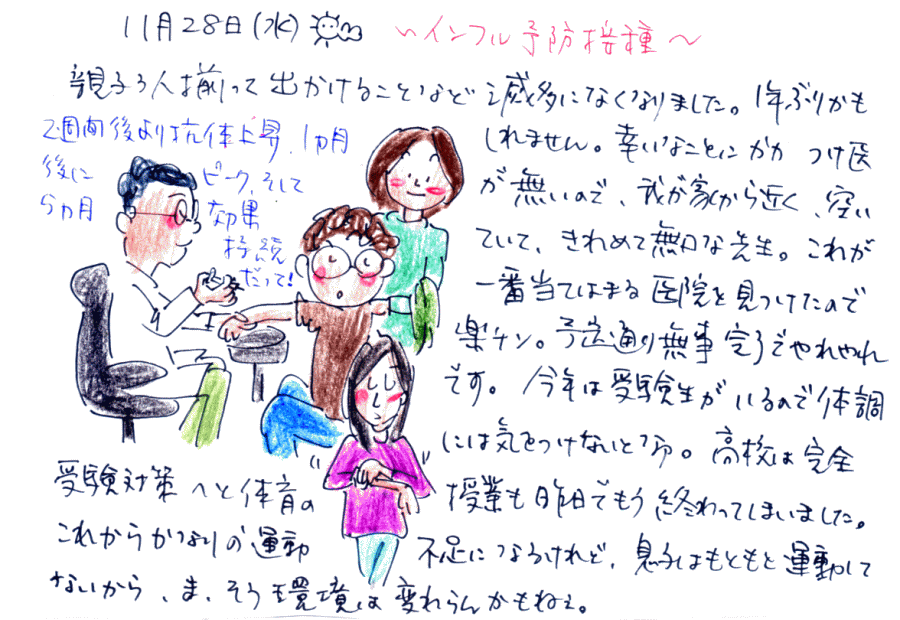 11月28日(水)
〜インフル予防接種〜
親子3人揃って出かけることなど滅多になくなりました。1年ぶりかも
しれません。幸いなことにかかりつけ医
が無いので、我が家から近く、空い
ていて、きわめて無口な先生。これが
一番当てはまる医院を見つけたので
楽チン。予定通り無事完了でやれやれ
です。今年は受験生がいるので体調
には気をつけないとね。高校は完全
受験対策へと体育の授業も昨日でもう終わってしまいました。
これからかなりの運動不足になるけれど、息子はもともと運動して
ないから、ま、そう環境は変わらんかもねぇ。
2週間後より抗体上昇、1カ月
後にピーク、そして
5カ月効果
持続
だって!